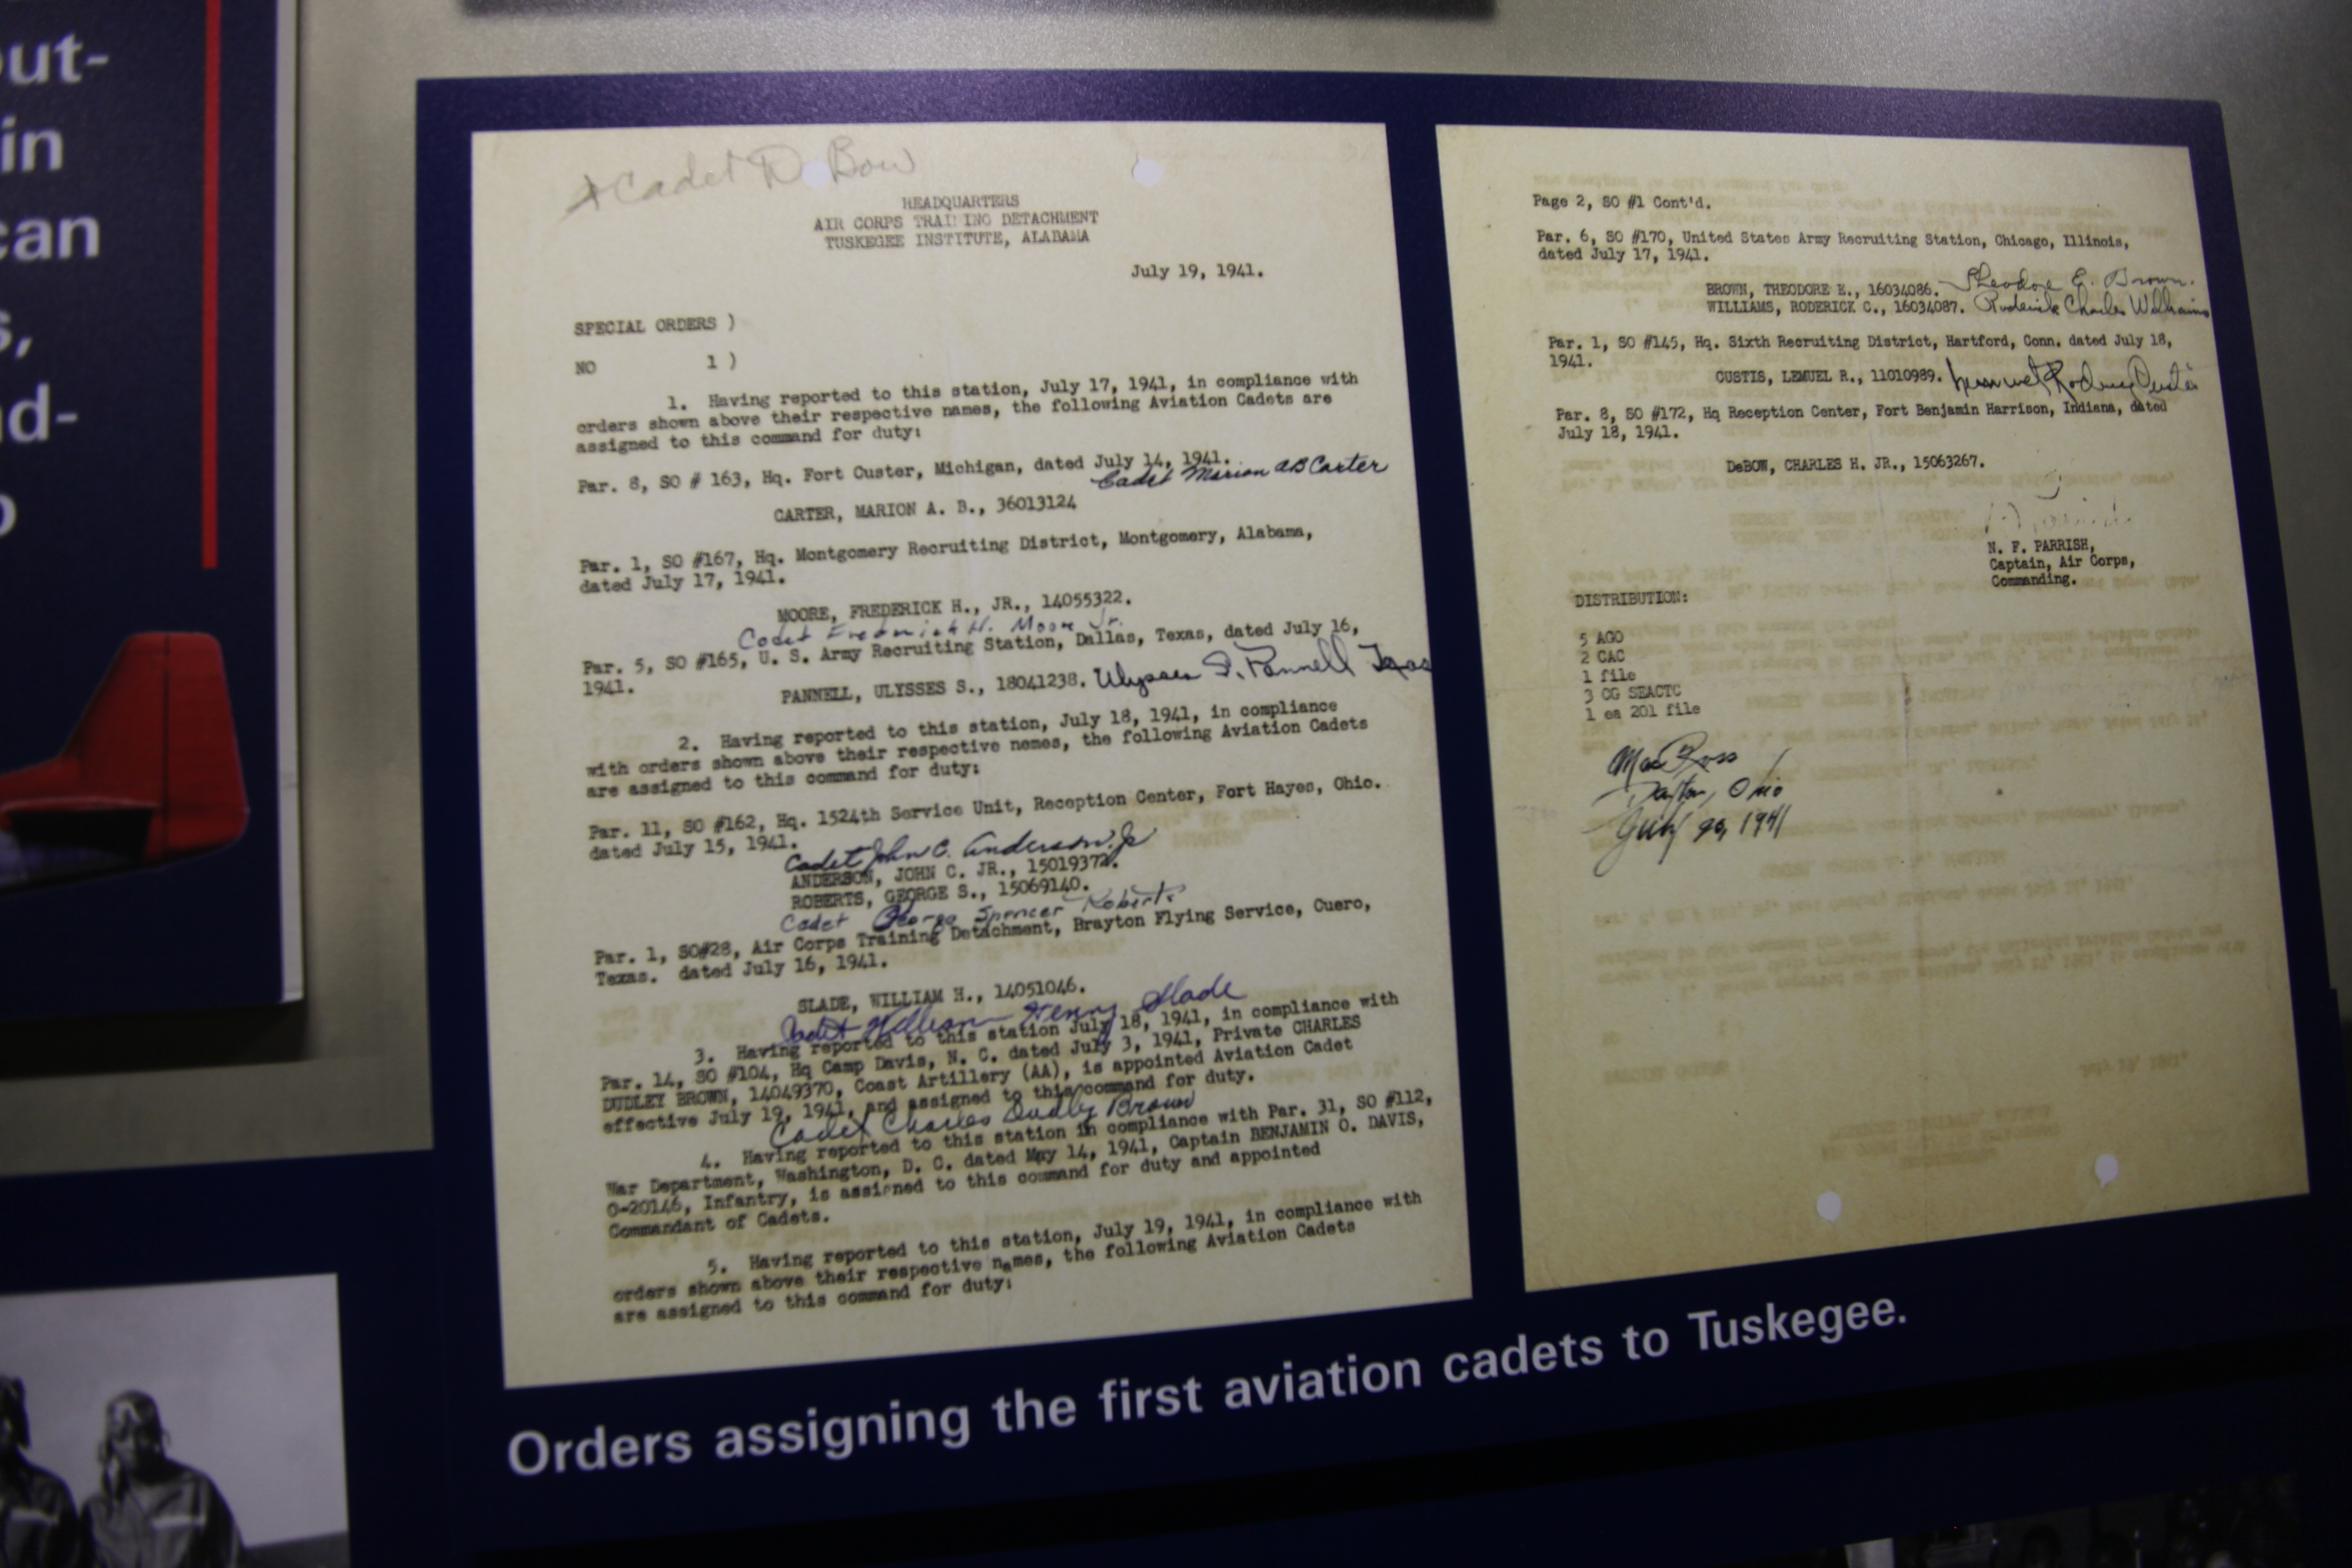 out-
in
can
s,
d-
Cadet D Bow
HEADQUARTERS
AIR CORPS TRAINING DETACHMENT
TUSKEGEE INSTITUTE, ALABAMA
July 19, 1941.
SPECIAL ORDERS )
NO 1 )
1. Having reported to this station, July 17, 1941, in compliance with
orders shown above their respective names, the following Aviation Cadets are
assigned to this command for duty:
Par. 8, SO # 163, Hq. Fort Custer, Michigan, dated July 14, 1941.
Cadet Marion AB Carter
CARTER, MARION A. B., 36013124
Par. 1, SO #167, Hq. Montgomery Recruiting District, Montgomery, Alabama,
dated July 17, 1941.
MOORE, FREDERICK H., JR., 14055322.
Cadet Frederick H. Moore Jr.
Par. 5, SO #165, U. S. Army Recruiting Station, Dallas, Texas, dated July 16,
1941.
PANNELL, ULYSSES S., 18041238. Ulysses S. Pannell Texas
2. Having reported to this station, July 18, 1941, in compliance
with orders shown above their respective names, the following Aviation Cadets
are assigned to this command for duty:
Par. 11, SO #162, Hq. 1524th Service Unit, Reception Center, Fort Hayes, Ohio.
dated July 15, 1941.
Cadet John C. Anderson Jr
ANDERSON, JOHN C. JR., 15019372.
ROBERTS, GEORGE S., 15069140.
Cadet George Spencer Roberts
Par. 1, SO#28, Air Corps Training Detachment, Brayton Flying Service, Cuero,
Texas. dated July 16, 1941.
SLADE, WILLIAM H., 14051046.
Cadet William Henry Slade
3. Having reported to this station July 18, 1941, in compliance with
Par. 14, SO #104, Hq Camp Davis, N. C. dated July 3, 1941, Private CHARLES
DUDLEY BROWN, 14049370, Coast Artillery (AA), is appointed Aviation Cadet
effective July 19, 1941, and assigned to this command for duty.
Cadet Charles Dudley Brown
4. Having reported to this station in compliance with Par. 31, SO #112,
War Department, Washington, D. C. dated May 14, 1941, Captain BENJAMIN O. DAVIS,
O-20146, Infantry, is assigned to this command for duty and appointed
Commandant of Cadets.
5. Having reported to this station, July 19, 1941, in compliance with
orders shown above their respective names, the following Aviation Cadets
are assigned to this command for duty:
Page 2, SO #1 Cont'd.
Par. 6, SO #170, United States Army Recruiting Station, Chicago, Illinois,
dated July 17, 1941.
BROWN, THEODORE E., 16034086. Theodore E. Brown.
WILLIAMS, RODERICK C., 16034087. Roderick Charles Williams
Par. 1, SO #145, Hq. Sixth Recruiting District, Hartford, Conn. dated July 18,
1941.
CUSTIS, LEMUEL R., 11010989. Lemuel Rodney Custis
Par. 8, SO #172, Hq Reception Center, Fort Benjamin Harrison, Indiana, dated
July 18, 1941.
DeBOW, CHARLES H. JR., 15063267.
N. F. PARRISH,
Captain, Air Corps,
Commanding.
DISTRIBUTION:
5 AGO
2 CAC
1 file
3 CG SEACTC
1 ea 201 file
Mac Ross
Dayton, Ohio
July 20, 1941
Orders assigning the first aviation cadets to Tuskegee.